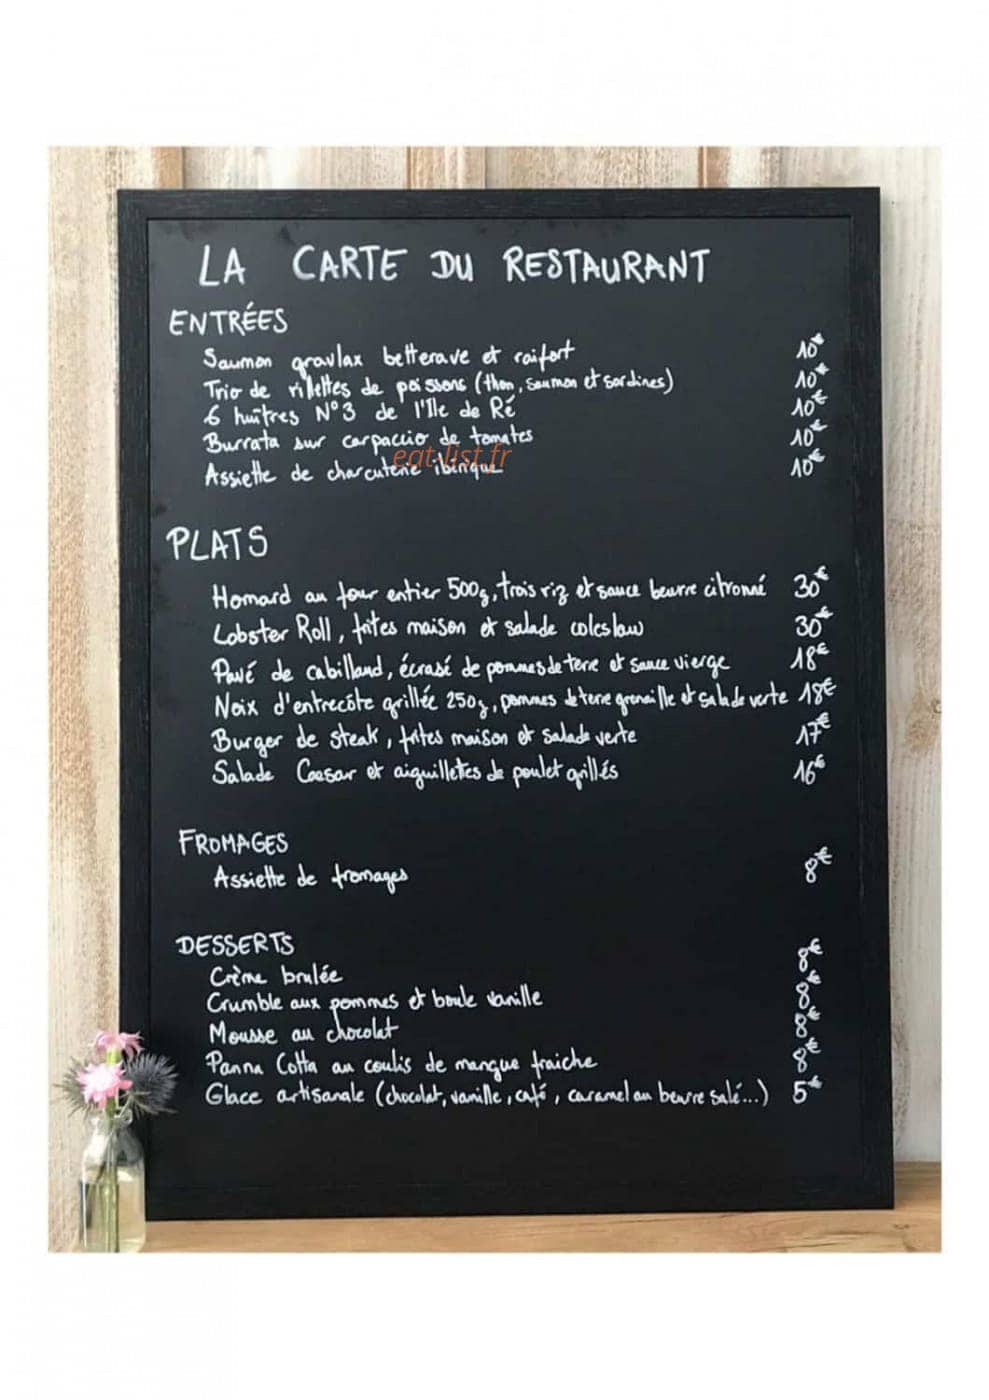 LA CARTE DU RESTAURANT
ENTRÉES
Saumon gravlax betterave et raifort 10€
Trio de rillettes de poissons (thon, saumon et sardines) 10€
6 huîtres N°3 de l'Ile de Ré 10€
Burrata sur carpaccio de tomates 10€
eat-list.fr
Assiette de charcuterie ibérique 10€
PLATS
Homard au four entier 500g, trois riz et sauce beurre citronné 30€
Lobster Roll, frites maison et salade coleslaw 30€
Pavé de cabillaud, écrasé de pommes de terre et sauce vierge 18€
Noix d'entrecôte grillée 250g, pommes de terre grenaille et salade verte 18€
Burger de steak, frites maison et salade verte 17€
Salade Caesar et aiguillettes de poulet grillés 16€
FROMAGES
Assiette de fromages 8€
DESSERTS
Crème brulée 8€
Crumble aux pommes et boule vanille 8€
Mousse au chocolat 8€
Panna Cotta au coulis de mangue fraiche 8€
Glace artisanale (chocolat, vanille, café, caramel au beurre salé...) 5€